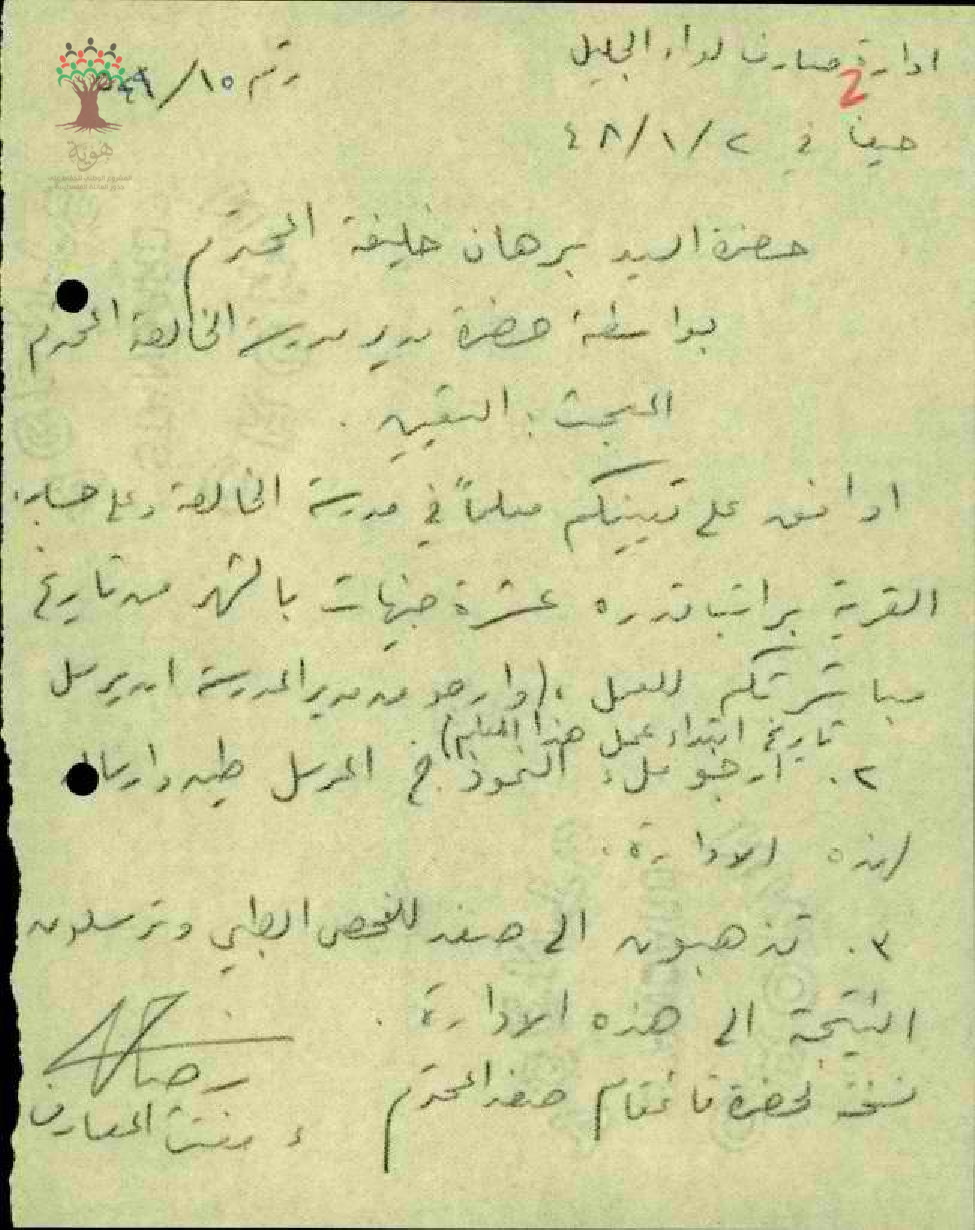 ادارة معارف لواء الجليل
رقم ١٥/
2
حيفا في ٤٨/١/٢
هوية
حضرة السيد برهان خليفة المحترم
بواسطة حضرة مدير مدرسة الخالصة المحترم
المبحث : التعيين .
اوافق على تعيينكم معلماً في مدرسة الخالصة وعلى حساب
القرية براتب قدره عشرة جنيهات بالشهر من تاريخ
مباشرتكم للعمل ، (وارجو من مدير المدرسة ان يرسل
تاريخ ابتداء عمل هذا المعلم)
٢. ارجو ملء النموذج المرسل طيه وارساله
لهذه الادارة .
٣. تذهبون الى صفد للفحص الطبي وترسلون
النتيجة الى هذه الادارة .
نسخة لحضرة قائمقام صفد المحترم
ء مفتش المعارف